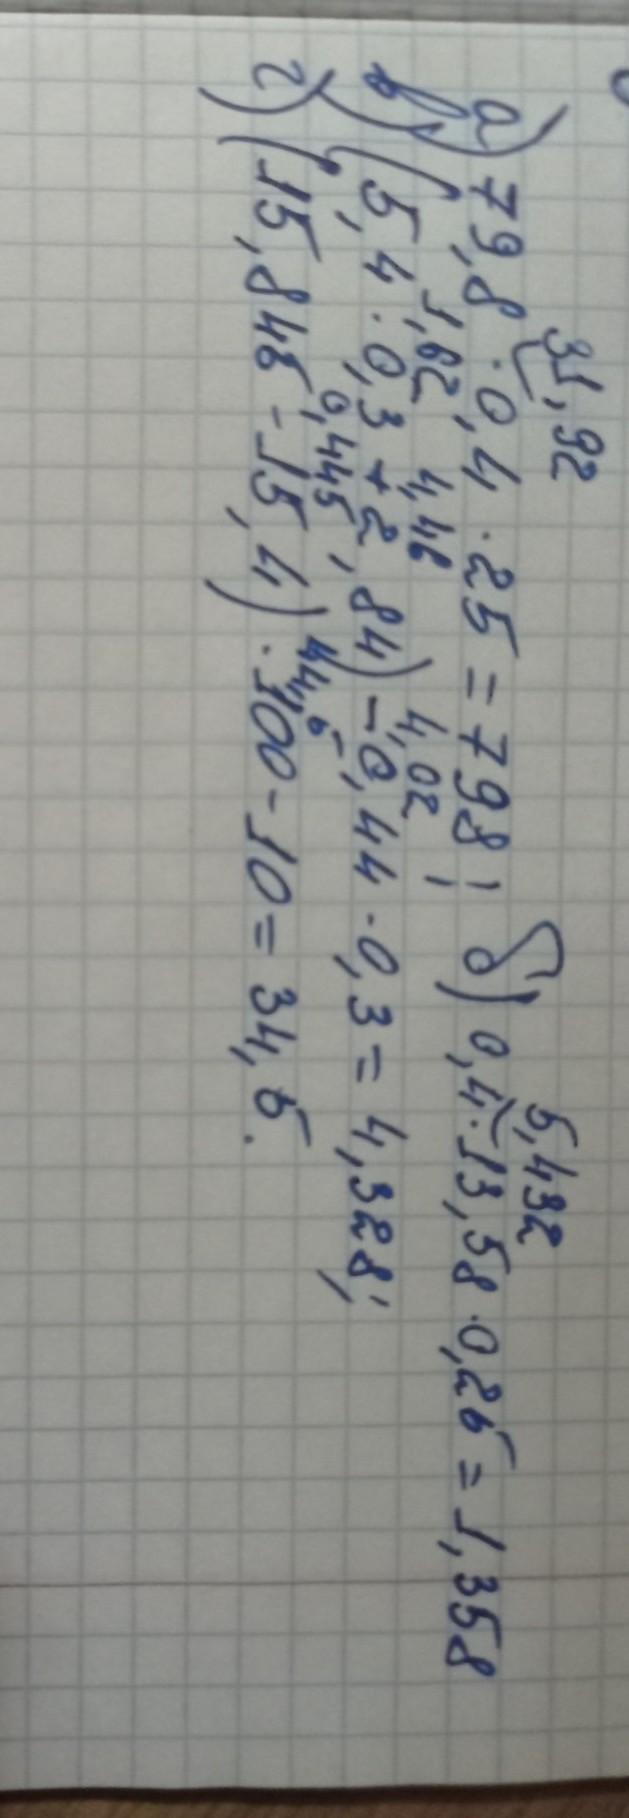 31,92 5,432
а) 79,8 · 0,4 · 25 = 798; б) 0,4 · 13,58 · 0,25 = 1,358
1,62 4,46 4,02
в) (5,4 · 0,3 + 2,84) - 0,44 · 0,3 = 4,328;
0,445 44,5
г) (15,845 - 15,4) · 100 - 10 = 34,5.